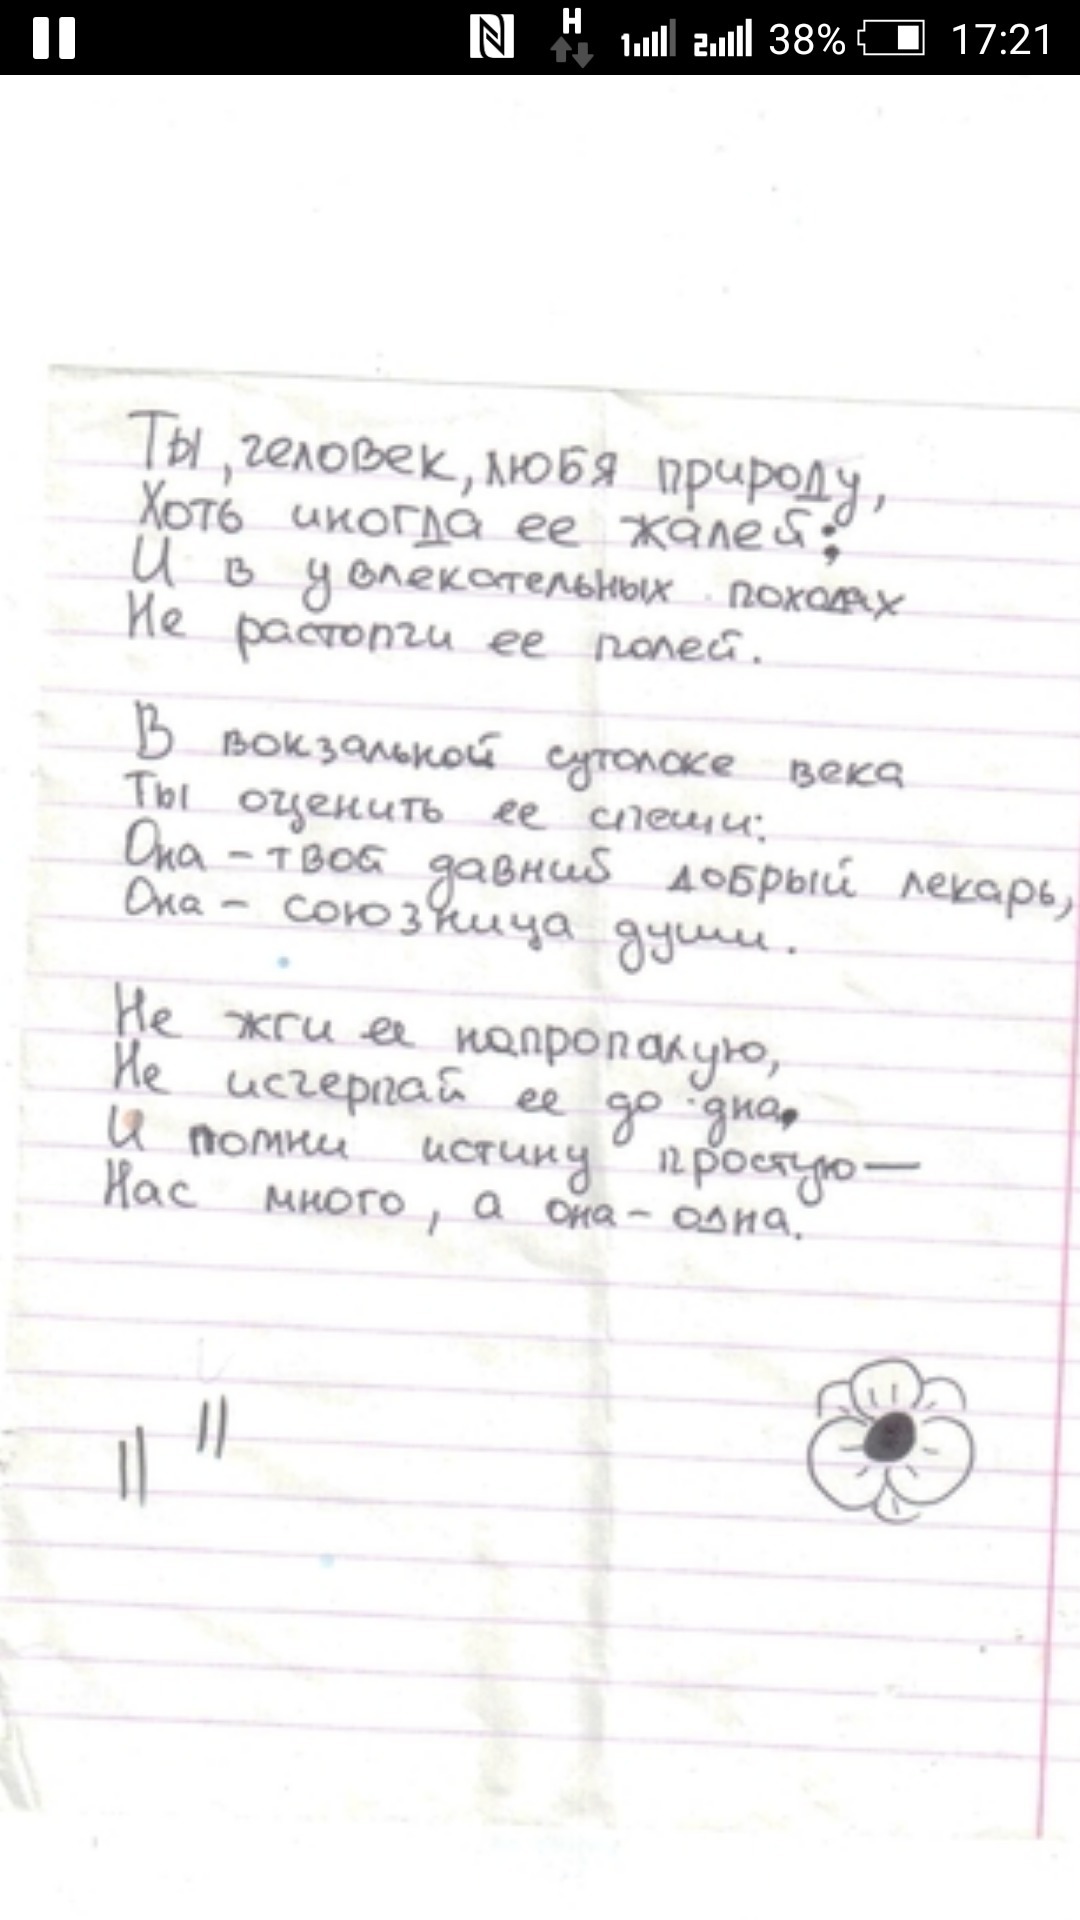 H
1 2 38% 17:21
Ты, человек, любя природу,
Хоть иногда ее жалей;
И в увлекательных походах
Не растопчи ее полей.
В вокзальной сутолоке века
Ты оценить ее спеши:
Она - твой давний добрый лекарь,
Она - союзница души.
Не жги ее напропалую,
Не исчерпай ее до дна.
И помни истину простую —
Нас много, а она - одна.